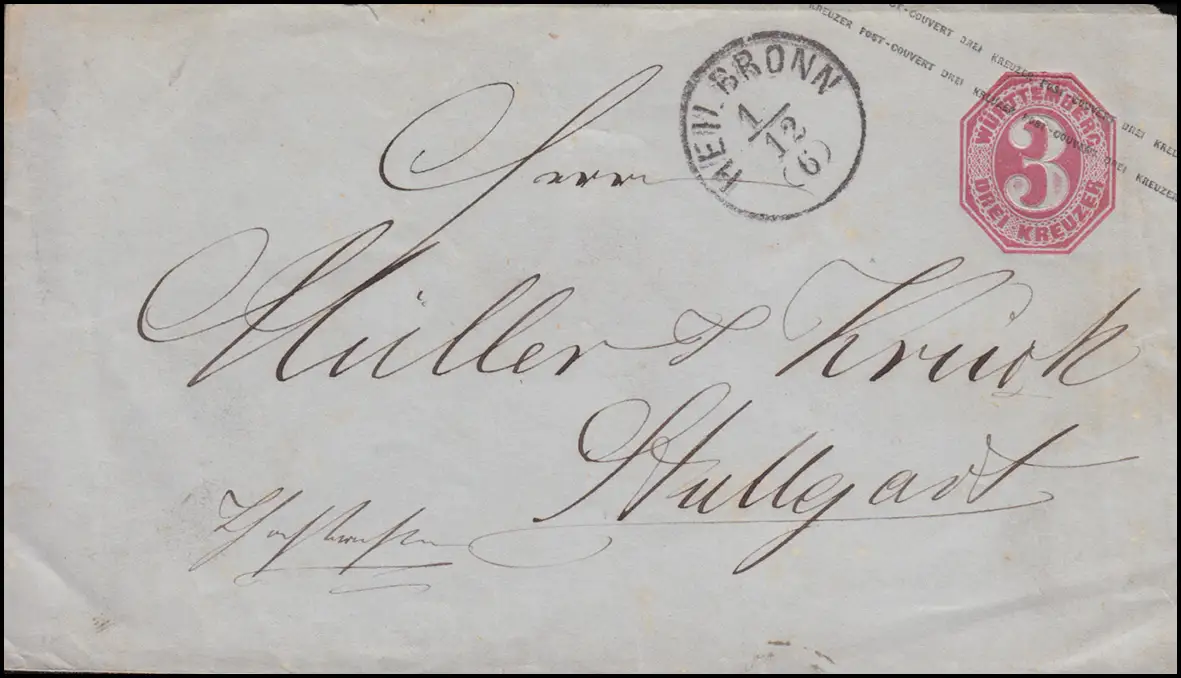 KREUZER POST-COUVERT DREI KREUZER POST-COUVERT DREI KREUZER
POST-COUVERT DREI KREUZER POST-COUVERT DREI KREUZER
HEILBRONN
1/12
(6)
WÜRTTEMBERG
3
DREI KREUZER
Herrn
Müller & Krück
Stuttgart